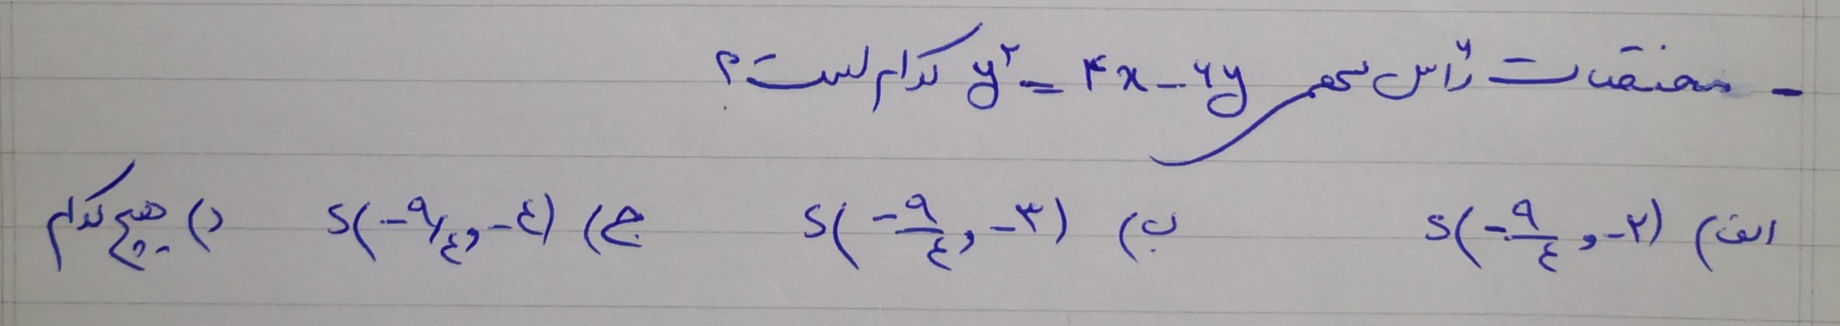 - مختصات رأس سهمی y² = ۴x - ۶y کدام است؟
الف) S(-۹/۴ , -۲) ب) S(-۹/۴ , -۳) ج) S(-۹/۴ , -۴) د) هیچ کدام